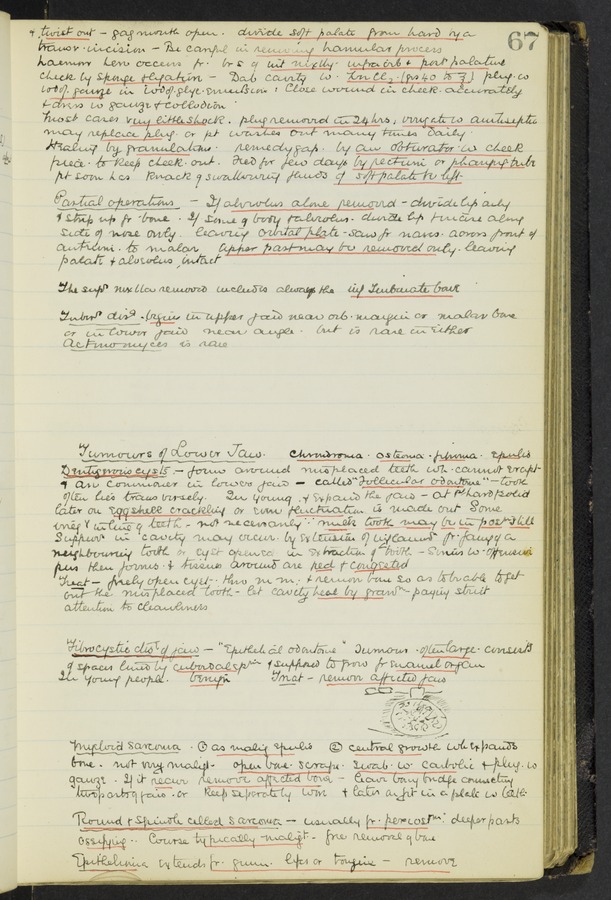 67
& twist out - gag mouth open. divide soft palate from hard by a
transv. incision - Be careful in removing hamular process
haemorr here occurs fr. brs of int maxlly. infraorb & post palatine
check by sponge & ligation - Dab cavity w. ZnCl2. (grs 40 to ℥) plug w
gauze in glyc. emulsion: Close wound in cheek accurately
& dress w gauze & collodion
most cases very little shock. plug removed in 24 hrs, irrigate w antiseptic
may replace plug. or pt washes out many times daily.
Healing by granulations. remedy gap. by an obturator w cheek
piece. to keep cheek out. Feed for few days by rectum or tube
pt soon has knack of swallowing fluids if soft palate be left.
Partial operations - If alveolus alone removed - divide lip only
& strip up fr bone. If some of body & alveolus. divide lip & incise along
side of nose only. leaving orbital plate - saw fr nares. across front of
antrum. to malar. Upper part may be removed only. leaving
palate & alveolus intact
The supr maxilla removed includes always the inf Turbinate bone
Tuberc disd. begins in upper jaw near orb. margin or malar bone
or in lower jaw near angle. but is rare in either
Actinomyces is rare
Tumours of Lower Jaw. chondroma. osteoma. fibroma. Epulis
Dentigerous cysts - form around misplaced teeth wh. cannot erupt
& are commoner in lower jaw - called "Follicular odontome" - tooth
often lies transversely. In young. & expand the jaw - at 1st hard & solid
later on eggshell crackling or even fluctuation is made out Some
irregy in line of teeth - not necessarily ∵ milk tooth may be in post still
Suppurn in cavity may occur. by extension of inflammn fr. fang of a
neighbouring tooth or cyst opened in extraction of tooth - Sinus w. offensive
pus then forms. & tissues around are red & congested
Treat - freely open cyst. thro m.m. & remove bone so as to be able to get
out the misplaced tooth - let cavity heal by grann - paying strict
attention to cleanliness
Fibrocystic disd of jaw - "Epithelial odontome" Tumour. often large. consists
of spaces lined by cuboidal epm & supposed to grow fr enamel organ
In young people. benign Treat - remove affected jaw
Myeloid Sarcoma. ① as malig epulis ② central growth wh expands
bone. not very malig. open bone. scrape. swab w. carbolic & plug w
gauze. If it recur remove affected bone - leave bony bridge connecting
two parts of jaw. or keep separately & later on fit in a plate w teeth
Round & spindle celled sarcoma - usually fr. periostm. deeper parts
ossifying. Course typically maligt. free removal of bone
Epithelioma extends fr. gum. lips or tongue - remove